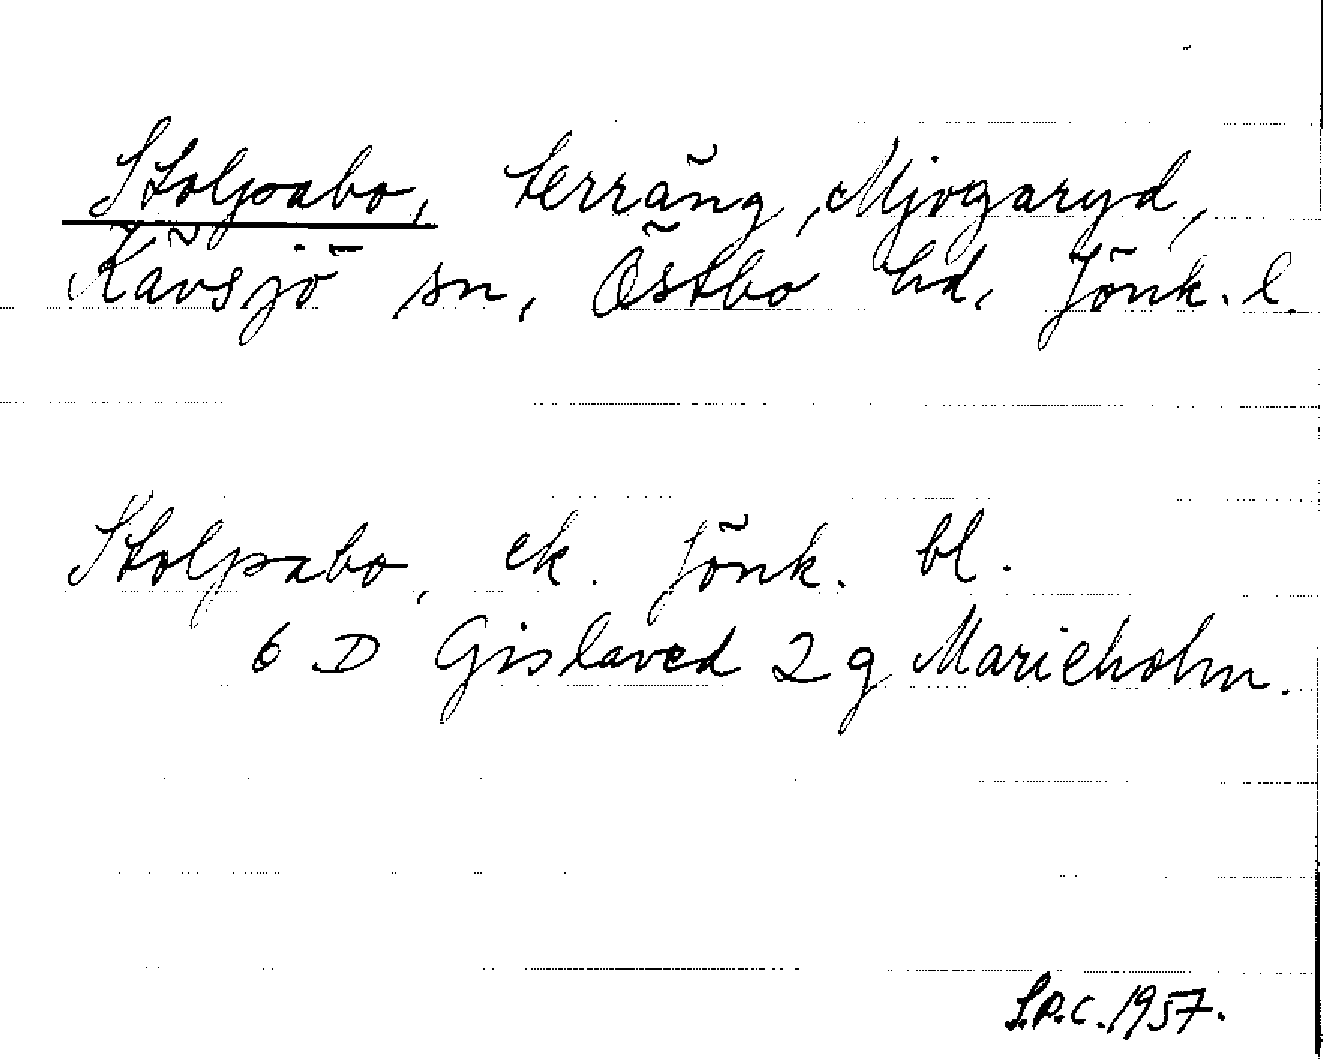 Stolpabo, terräng, Mjogaryd,
Kävsjö sn, Östbo hd, Jönk. l.
Stolpabo, ek. Jönk. bl.
6 D Gislaved 2 g Marieholm.
S.P.C. 1957.